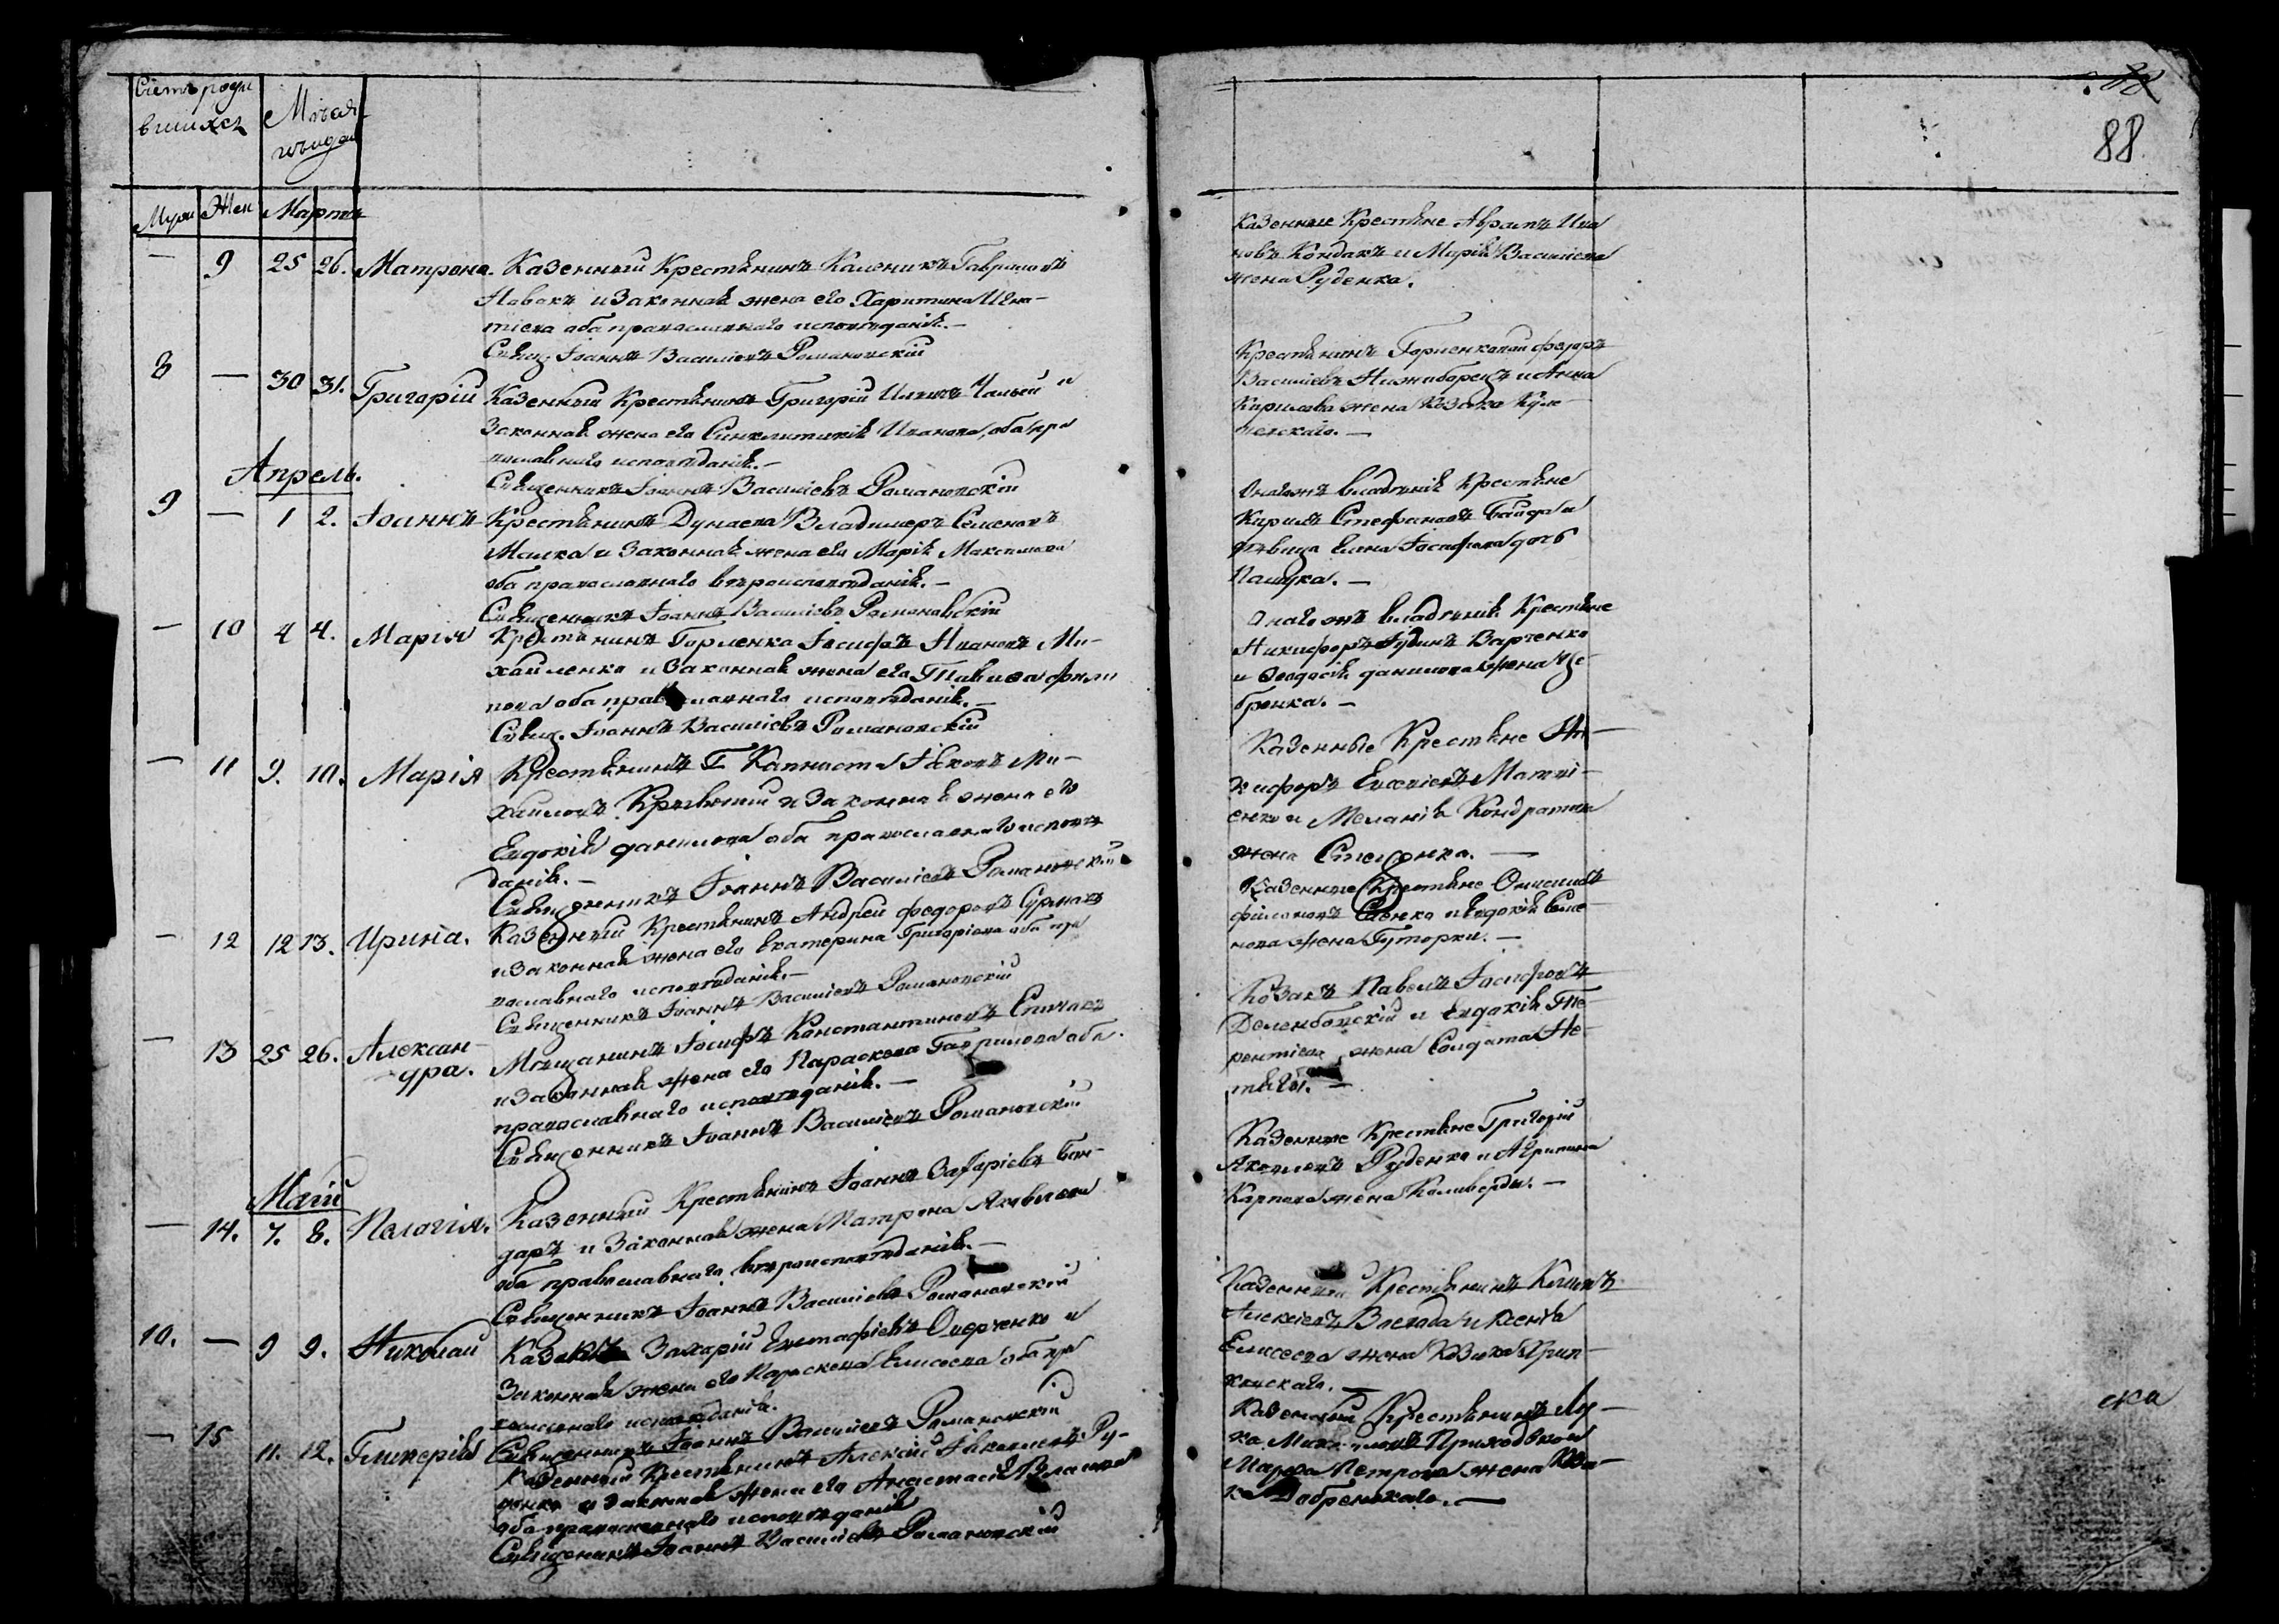 Счетъ роди
вшихся
Мѣсяц
и день
Муж Жен Марта
— 9 25 26. Матрона. Казенный Крестьянинъ Каленикъ Гавриловъ
Новакъ и Законная жена его Харитина Игна-
тіева оба православнаго исповѣданія.—
Свящ. Іоаннъ Васильевъ Романовскій
8 — 30 31. Григорій Казенный Крестьянинъ Григорій Чалый и
Законная жена его Синклитикія Иванова, оба пра
вославнаго исповѣданія.—
Священникъ Іоаннъ Васильевъ Романовскій
Апрель.
9 — 1 2. Іоаннъ Крестьянинъ Дунаева Владимеръ Семеновъ
Малка и Законная жена его Марія Максимова
оба православнаго вѣроисповѣданія.—
Священникъ Іоаннъ Васильевъ Романовскій
— 10 4 4. Марія Крестьянинъ Горленка Іосифъ Ивановъ Ми-
хайленко и Законная жена его Фили
пова оба православнаго исповѣданія.—
Свящ. Іоаннъ Васильевъ Романовскій
— 11 9. 10. Марія Крестьянинъ Г. Капниста Яковъ Ми-
хайловъ и Законная жена его
Евдокія Данилова оба православнаго исповѣ
данія.—
Священникъ Іоаннъ Васильевъ Романовскій
— 12 12 13. Ирина. Казенный Крестьянинъ Андрей Федоровъ Сурмачъ
и Законная жена его Екатерина Григоріева оба пра
вославнаго исповѣданія.—
Священникъ Іоаннъ Васильевъ Романовскій
— 13 25 26. Алексан-
дра. Мѣщанинъ Іосифъ Константиновъ Спичакъ
и Законная жена его Параскева Гаврилова оба
православнаго исповѣданія.—
Священникъ Іоаннъ Васильевъ Романовскій
Маій
— 14. 7. 8. Пелагія. Казенный Крестьянинъ Іоаннъ Захаріевъ Бон-
даръ и Законная жена Матрона Яковлева
оба православнаго вѣроисповѣданія.—
Священникъ Іоаннъ Васильевъ Романовскій
10. — 9 9. Николай Казакъ Захарій Евстафіевъ и
Законная жена его Параскева Елисеева оба пра
вославнаго исповѣданія.
Священникъ Іоаннъ Васильевъ Романовскій
— 15 11. 12. Гликерія Казенный Крестьянинъ Алексій Яковлевъ Ру-
денко и Законная жена его Анастасія Власова
оба православнаго исповѣданія
Священникъ Іоаннъ Васильевъ Романовскій
88
88
Казенные Крестьяне Аврамъ Ива
новъ Кондакъ и Марія Василіева
жена Руденка.
Крестьянинъ Горленковой Федоръ
Василіевъ Нижиборецъ и Анна
Кирилова жена Козака Куле-
Онагожъ владѣнія Крестьяне
Кирилъ Стефановъ Байда и
дѣвица Елена Іосифова дочь
Пащука.—
Онагожъ владѣнія Крестьяне
Никифоръ Варченко
и Феодосія Данилова жена Це-
бренка.—
Казенные Крестьяне Ни-
кифоръ Матви-
енко и Меланія Кондратова
жена Стеценка.—
Казенные Крестьяне Онисимъ
Филиповъ и Евдокія Семе-
нова жена Гуторки.—
Козакъ Павелъ Іосифовъ
Долембовскій и Евдокія Те-
рентіева жена Солдата Не-
тяги.—
Казенные Крестьяне Григорій
Яковлевъ Руденко и Агрипина
Карпова жена Каливерди.—
Казенный Крестьянинъ
Алексіевъ и Ксенія
Елисеева жена Козака Крип-
Казенный Крестьянинъ Лу-
ка Михайловъ Приходько и
Марфа Петрова жена Коза-
ка Добренькаго.—
ска